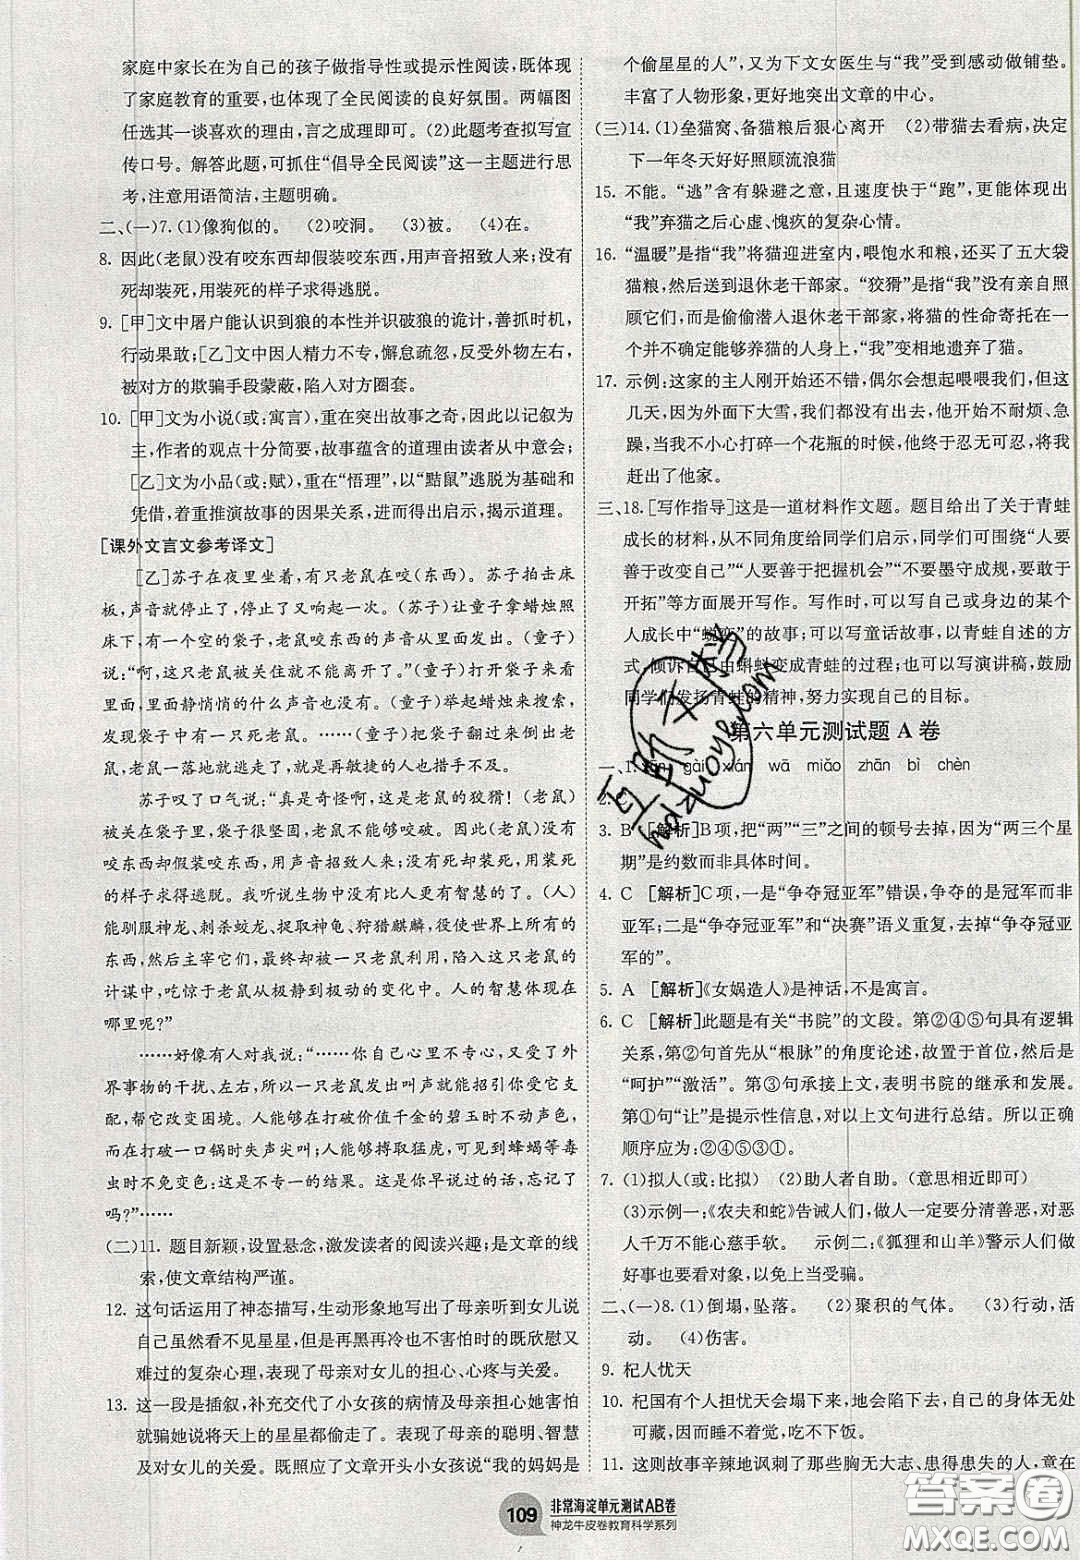 家庭中家长在为自己的孩子做指导性或提示性阅读,既体现
了家庭教育的重要,也体现了全民阅读的良好氛围。两幅图
任选其一谈喜欢的理由,言之成理即可。(2)此题考查拟写宣
传口号。解答此题,可抓住“倡导全民阅读”这一主题进行思
考,注意用语简洁,主题明确。
二、(一)7.(1)像狗似的。 (2)咬洞。 (3)被。 (4)在。
8. 因此(老鼠)没有咬东西却假装咬东西,用声音招致人来;没有
死却装死,用装死的样子求得逃脱。
9. [甲]文中屠户能认识到狼的本性并识破狼的诡计,善抓时机,
行动果敢;[乙]文中因人精力不专,懈怠疏忽,反受外物左右,
被对方的欺骗手段蒙蔽,陷入对方圈套。
10. [甲]文为小说(或:寓言),重在突出故事之奇,因此以记叙为
主,作者的观点十分简要,故事蕴含的道理由读者从中意会;
[乙]文为小品(或:赋),重在“悟理”,以“黠鼠”逃脱为基础和
凭借,着重推演故事的因果关系,进而得出启示,阐明道理。
[课外文言文参考译文]
[乙]苏子在夜里坐着,有只老鼠在咬(东西)。苏子拍击床
板,声音就停止了,停止了又响起一次。(苏子)让童子拿蜡烛照
床下,有一个空的袋子,老鼠咬东西的声音从里面发出。(童子)
说:“啊,这只老鼠被关住就不能离开了。”(童子)打开袋子来看,
里面静悄悄的什么声音也没有。(童子)举起蜡烛来搜索,发现
袋子中有一只死老鼠。……(童子)把袋子翻过来倒出老鼠,
老鼠一落地就逃走了,就是再敏捷的人也措手不及。
苏子叹了口气说:“真是奇怪啊,这是老鼠的狡猾!(老鼠)
被关在袋子里,袋子很坚固,老鼠不能够咬破。所以(老鼠)没有
咬东西却假装咬东西,用声音招致人来;没有死却装死,用装死
的样子求得逃脱。我听说生物中没有比人更有智慧的了。(人)
能驯服神龙、刺杀蛟龙、捉取神龟、狩猎麒麟,役使世界上所有的
东西,然后主宰它们,最终却被一只老鼠利用,陷入这只老鼠的
计谋中,吃惊于老鼠从极静到极动的变化中。人的智慧体现在
哪里呢?”
……好像有人对我说:“……你自己心里不专心,又受了外
界事物的干扰、左右,所以一只老鼠发出叫声就能招引你受它支
配,帮它改变困境。人能够在打破价值千金的碧玉时不动声色,
而在打破一口锅时失声尖叫;人能够搏取猛虎,可见到蜂蝎等毒
虫时不免变色:这是不专一的结果。这是你说过的话,忘记了
吗?”……
(二)11. 题目新颖,设置悬念,激发读者的阅读兴趣;是文章的线
索,使文章结构严谨。
12. 这句话运用了神态描写,生动形象地写出了母亲听到女儿说
自己虽然看不见星星,但是再黑再冷也不害怕时的既欣慰又
难过的复杂心理,表现了母亲对女儿的担心、心疼与关爱。
13. 这一段是插叙,补充交代了小女孩的病情及母亲担心她害怕
就骗她说将天上的星星都偷走了。表现了母亲的聪明、智慧
及对女儿的关爱。既照应了文章开头小女孩说“我的妈妈是
个偷星星的人”,又为下文女医生与“我”受到感动做铺垫。
丰富了人物形象,更好地突出文章的中心。
(三)14.(1)垒猫窝、备猫粮后狠心离开 (2)带猫去看病,决定
下一年冬天好好照顾流浪猫
15. 不能。“逃”含有躲避之意,且速度快于“跑”,更能体现出
“我”弃猫之后心虚、愧疚的复杂心情。
16. “温暖”是指“我”将猫迎进室内,喂饱水和食,还买了五大袋
猫粮,然后送到退休老干部家。“狡猾”是指“我”没有亲自照
顾它们,而是偷偷潜入退休老干部家,将猫的性命寄托在一
个并不确定能够养猫的人身上,“我”变相地遗弃了猫。
17. 示例:这家的主人刚开始还不错,偶尔会想起喂喂我们,但这
几天,因为外面下大雪,他好像都没有出去,他开始不耐烦、急
躁,当我不小心打碎一个花瓶的时候,他终于忍无可忍,将我
赶出了他家。
三、18.[写作指导]这是一道材料作文题。题目给出了关于青蛙
成长的材料,从而给同学们启示,同学们可围绕“人要
善于改变自己”“人要善于把握机会”“不要墨守成规,要敢于
开拓”等方面展开写作。写作时,可以写自己或身边的某个
人成长中“蜕变”的故事;可以写童话故事,以青蛙自述的方
式,倾诉自己由蝌蚪变成青蛙的过程;也可以写演讲稿,鼓励
同学们发扬青蛙的精神,努力实现自己的目标。
第六单元测试题 A 卷
一、1. gài xián wā miǎo zhān bì chèn
2.
3. B [解析]B项,把“两”“三”之间的顿号去掉,因为“两三个星
期”是约数而非具体时间。
4. C [解析]C项,一是“争夺冠亚军”错误,争夺的是冠军而非
亚军;二是“争夺冠亚军”和“决赛”语义重复,去掉“争夺冠亚
军的”。
5. A [解析]《女娲造人》是神话,不是寓言。
6. C [解析]此题是有关“书院”的文段。第②④⑤句具有逻辑
关系,第②句首先从“根脉”的角度论述,故置于首位,然后是
“呵护”“激活”。第③句承接上文,表明书院的继承和发展。
第①句“让”是提示性信息,对以上文句进行总结。所以正确
顺序应为:②④⑤③①。
7. (1)拟人(或:比拟) (2)助人者自助。(意思相近即可)
(3)示例一:《农夫和蛇》告诫人们,做人一定要分清善恶,对恶
人千万不能心慈手软。 示例二:《狐狸和山羊》警示人们做
好事也要看对象,以免上当受骗。
二、(一)8.(1)倒塌,坠落。 (2)聚积的气体。 (3)行动,活
动。 (4)伤害。
9. 杞人忧天
10. 杞国有个人担忧天会塌下来,地会陷下去,自己的身体无处
可藏,因而睡不着觉,吃不下饭。
11. 这则故事辛辣地讽刺了那些胸无大志、患得患失的人,意在
109
非常海淀单元测试AB卷
神龙牛皮卷教育科学系列
答案圈
MXQE.COM